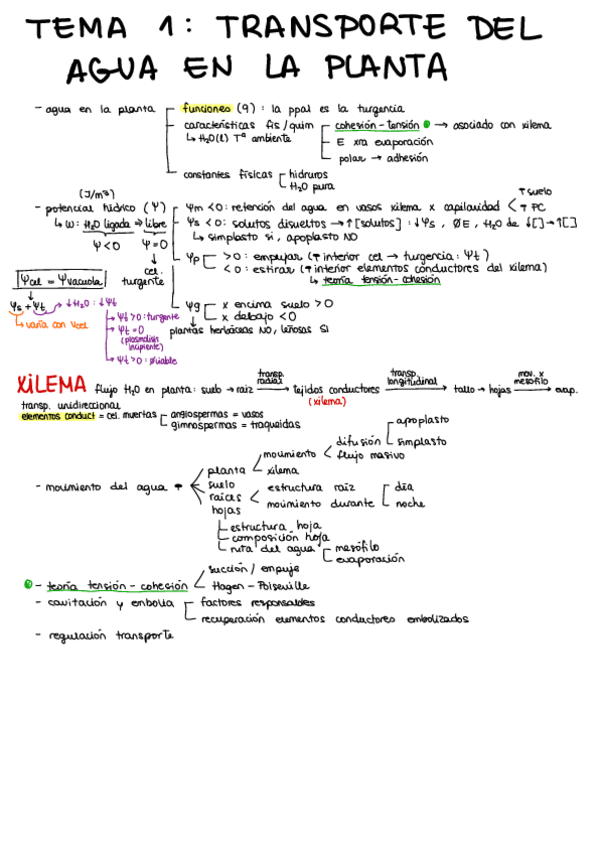 TEMA 1: TRANSPORTE DEL
AGUA EN LA PLANTA
- agua en la planta
funciones (9): la ppal es la turgencia
características fis/quim
↳ H₂O(l) Tª ambiente
cohesión-tensión → asociado con xilema
E xra evaporación
polar → adhesión
constantes físicas
hidruros
H₂O pura
(J/m³)
- potencial hídrico (Ψ)
↳ ω: H₂O ligada ⇒ libre
Ψ<0 Ψ=0
↓
cel.
turgente
Ψm <0: retención del agua en vasos xilema x capilaridad
↑ suelo
↑ PC
Ψs <0: solutos disueltos → ↑[solutos]: ↓Ψs, ØE, H₂O de ↓[] → ↑[]
↳ simplasto si, apoplasto NO
Ψp
>0: empujar (↑ interior cel → turgencia: Ψt)
<0: estirar (↑ interior elementos conductores del xilema)
↳ teoría tensión-cohesión
Ψg
x encima suelo >0
x debajo <0
plantas herbáceas NO, leñosas SI
Ψcel = Ψvacuola
↓
Ψs + Ψt → ↓H₂O: ↓Ψt
↳ varía con Vcel
Ψt>0: turgente
Ψt=0
(plasmólisis
incipiente)
Ψt>0: Øviable
XILEMA flujo H₂O en planta: suelo → raíz → transp. radial → tejidos conductores → transp. longitudinal → tallo → hojas → mov. x mesófilo → evap.
(xilema)
transp. unidireccional
elementos conduct = cel. muertas
angiospermas = vasos
gimnospermas = traqueidas
- movimiento del agua ↑
planta
movimiento
difusión
apoplasto
simplasto
flujo masivo
xilema
suelo
raíces
estructura raíz
movimiento durante
día
noche
hojas
estructura hoja
composición hoja
ruta del agua
mesófilo
evaporación
- teoría tensión-cohesión
succión/empuje
Hagen-Poiseuille
- cavitación y embolia
factores responsables
recuperación elementos conductores embolizados
- regulación transporte